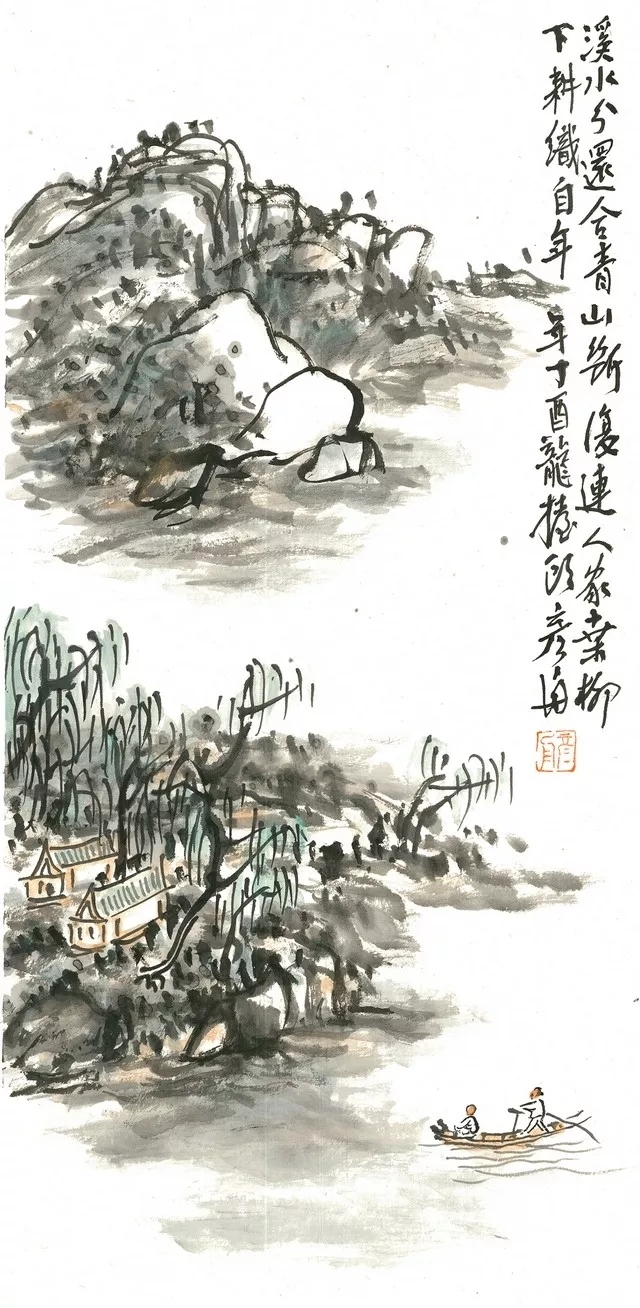 溪水分還合青山斷復連人家桒柳
下耕織自年 年丁酉龍擡頭彥